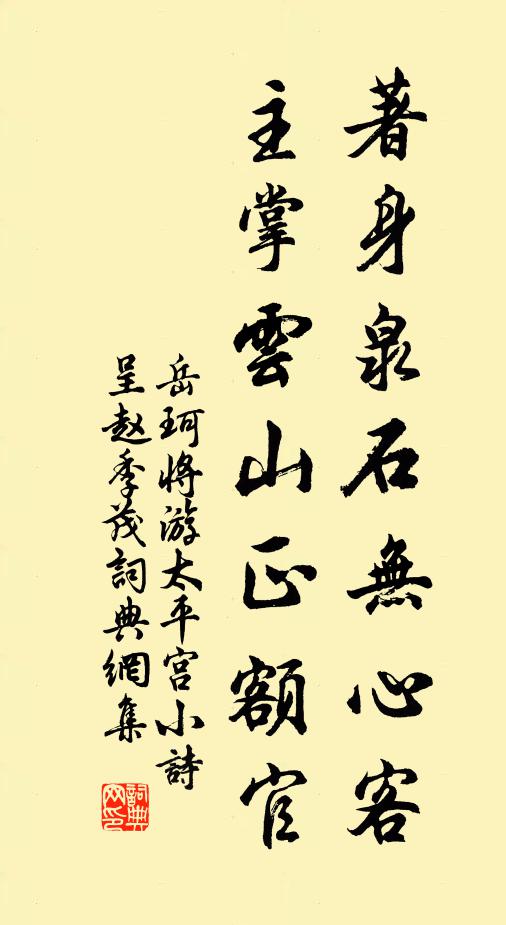 著身泉石無心客
主掌雲山正額官
岳珂将游太平宫小詩
呈赵季茂詞典網集
詞典
网印